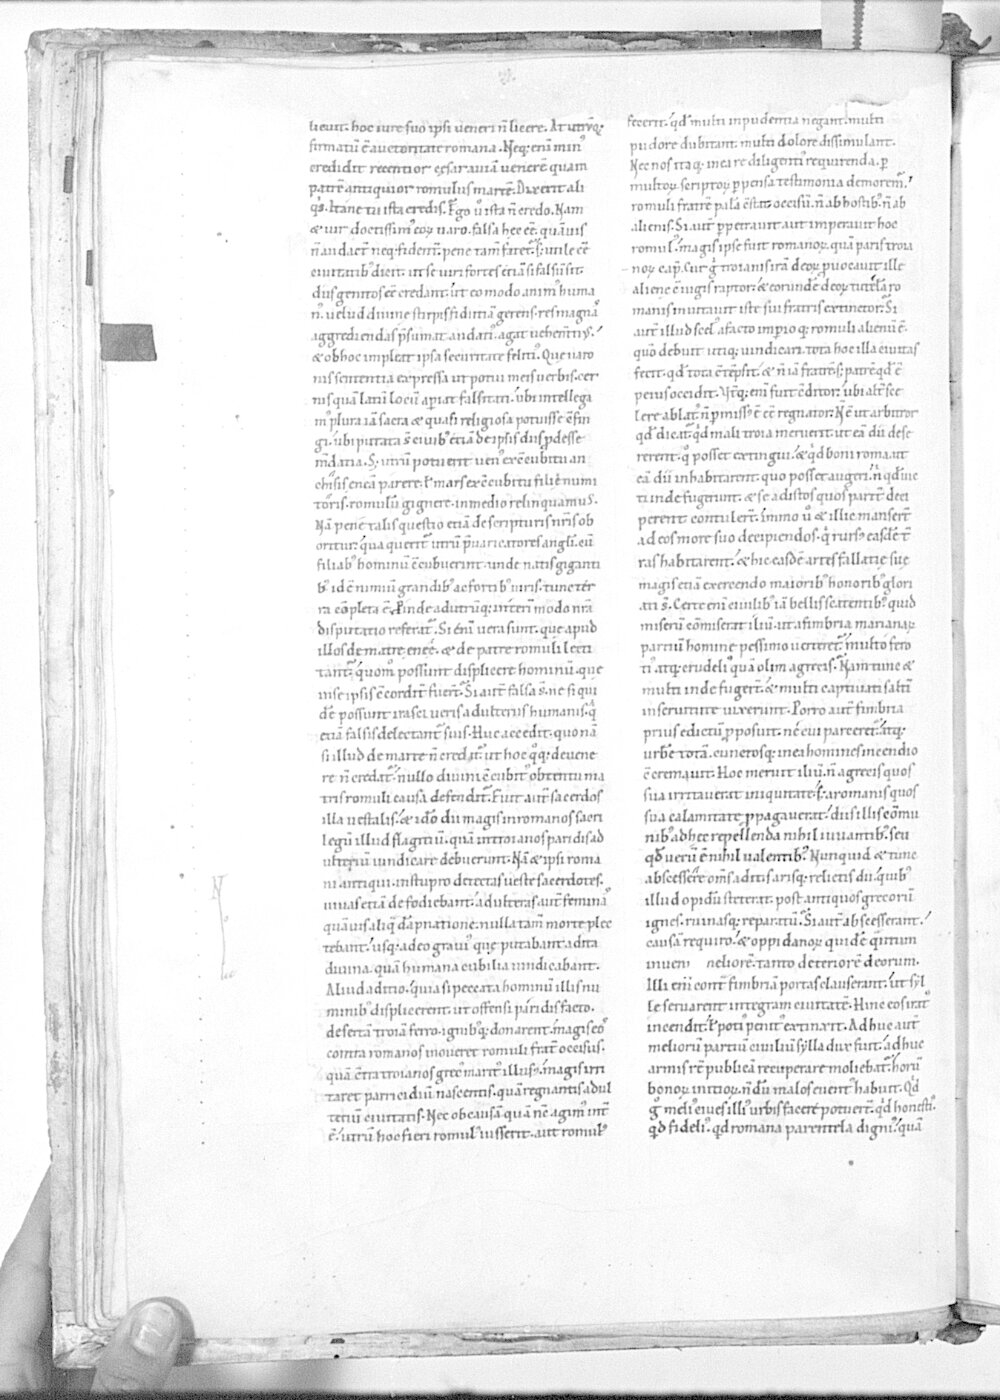 licuit. hoc iure suo ipsi ueneri n̄ licere. At utrūq;
firmatū ē auctoritate romana. Neq; eni min᷒
credidit recentior cęsar auiā uenerē quam
patrē antiquior romulus martē. Dixerit ali
q̇s. Itane tu ista credis. Ego ů ista n̄ credo. Nam
& uir doctissim᷒ eoꝝ uaro. falsa hęc ēē. quāuis
n̄ audact̄ neq; fident̄. pene tam̄ fatet᷑. S; utile ēē
ciuitatib᷒ dicit. ut se uiri fortes etiā si falsū sit.
diis genitos ēē credant. ut eo modo anim᷒ huma
n᷒. uelud diuinę stirpis fidutiā gerens. res magna᷒
aggrediendas p̄sumat audati᷒. agat uehem̄ti᷒.
& ob hoc impleat ipsa securitate felici᷒. Quę uaro
nis sententia expressa ut potui meis uerbis. cer
nis quā latū locū apiat falsitati. ubi intellega
m᷒ plura iā sacra & quasi religiosa potuisse c̄fin
gi. ubi putata s̄ ciuib᷒ etiā de ipsis diis pdesse
m̄datia. S; utrū potuerit uen᷒ ex c̄cubitu an
chisis eneā parere. ł mars ex c̄cubitu filię numi
toris. romulū gignere. in medio relinquamus.
Nā pene talis questio etiā de scripturis nr̄is ob
oritur. qua querit᷑ utrū p̄uaricatores angli. cū
filiab᷒ hominū c̄cubuerint. unde natis giganti
b᷒ id ē nimiū grandib᷒ ac fortib᷒ uiris. tunc ter
ra cōpleta ē. Pinde ad utrūq; interī modo nr̄a
disputatio referat᷑. Si enī uera sunt. que apud
illos de matre eneę. & de patre romuli lecti
tant᷑. quom᷒ possunt displicere hominū. que
in se ipsis c̄cordit᷑ fuer̄t. Si aut̄ falsa s̄. ne si qui
dē possunt irasci ueris adulteriis humanis. q̇
etiā falsis delectant᷑ suis. Huc accedit. quo nā
si illud de marte n̄ credit᷑. ut hoc q̊q; de uene
re n̄ credat᷑. nullo diuini c̄cubit᷒ obtentu ma
tris romuli causa defendit᷑. Fuit aut̄ sacerdos
illa uestalis. & ido᷒ dii magis in romanos sacri
legiū illud flagitiū. quā in troianos paridis ad
ulteriū uindicare debuerunt. Nā & ipsi roma
ni antiqui. in stupro detectas uestę sacerdotes.
uiuas etiā defodiebant. adulteras aut̄ feminas
quāuis aliq̄ dāpnatione. nulla tam̄ morte plec
tebant. usq; adeo graui᷒ que putabant adita
diuina. quā humana cubilia uindicabant.
Aliud aditio. quia si peccata hominū illis nu
minib᷒ displicerent. ut offensi paridis facto.
desertā troiā ferro. ignib᷒q; donarent. magis eo᷒
contra romanos moueret romuli frat᷑ occisus.
quā c̄tra troianos grec᷒ marit᷒ illus᷒. magis irri
taret parricidiū nascentis. quā regnantis adul
teriū ciuitatis. Nec ob causā quā nc̄ agim᷒ int᷑
ē. utrū hoc fieri romul᷒ iusserit. aut romul᷒
fecerit. qđ multi inpudentia negant. multi
pudore dubitant. multi dolore dissimulant.
Nec nos itaq; in ea re diligenti᷒ requirenda. p
multoꝝ scriptoꝝ ppensa testimonia demorem᷑.
romuli fratrē palā c̄stat occisū. n̄ ab hostib᷒. n̄ ab
alienis. Si aut̄ ppetrauit aut imperauit hoc
romul᷒. magis ipse fuit romanoꝝ. quā paris troia
noꝝ cap̄. Cur g᷒ troianis irā deoꝝ puocauit ille
alienę c̄iugis raptor. & eorundē deoꝝ tutelā ro
manis inuitauit iste sui fratris extinctor. Si
aut̄ illud scel᷒ a facto imperioq; romuli alienū ē.
quō debuit utiq; uindicari. tota hoc illa ciuitas
fecit. qđ tota c̄tēpsit. & n̄ iā fratrē. s; patrē qđ ē
peius occidit. Vt̄q; enī fuit c̄ditor. ubi alt᷑ sce
lere ablat᷒. n̄ pmiss᷒ ē ēē regnator. N̄ ē ut arbitror
qđ dicat᷑. qđ mali troia meruerit ut eā dii dese
rerent. q̊ posset extingui. & qđ boni roma. ut
eā dii inhabitarent. quo posset augeri. n᷒ qđ uic
ti inde fugerunt. & se ad istos quos parit̄ deci
perent contuler̄t. immo ů & illic manser̄t
ad eos more suo decipiendos. q̇ rurs᷒ easdē t̄
ras habitarent. & hic easdē artes fallatię suę
magis etiā exercendo maiorib᷒ honorib᷒ glori
ati s̄. Certe enī ciuilib᷒ iā bellis scatentib᷒. quid
miserū cōmiserat iliū. ut a fimbria marianaꝝ
partiū homine pessimo uerteret᷑. multo fero
ti᷒. atq; crudeli᷒ quā olim a grecis. Nam tunc &
multi inde fuger̄t. & multi captiuati saltī
in seruitute uixerunt. Porro aut̄ fimbria
prius edictū pposuit. ne cui parceret᷑. atq;
urbē totā. cunctosq; in ea homines incendio
c̄cremauit. Hoc meruit iliū. n̄ a grecis quos
sua irritauerat iniquitate. ł a romanis quos
sua calamitate ppagauerat. diis illis cōmu
nib᷒ ad hęc repellenda nihil iuuantib᷒. seu
qđ uerū ē nihil ualentib᷒. Nunquid & tunc
abscessere om̄s aditis arisq; relictis dii. quib᷒
illud opidū steterat. post antiquos grecorū
ignes. ruinasq; reparatū. Si aut̄ abscesserant.
causā requiro. & oppidanoꝝ quidē q̇ntum
inueni meliorē. tanto deteriorē deorum.
Illi enī cont̄ fimbriā portas clauserant. ut syl
le seruarent integram ciuitatē. Hinc eos irat᷒
incendit. ł poti᷒ penit᷒ extinxit. Adhuc aut̄
meliorū partiū ciuiliū sylla dux fuit. adhuc
armis rē publicā recuperare moliebat᷑. horū
bonoꝝ initioꝝ. n̄dū malos euent᷒ habuit. Qđ
g᷒ meli᷒ ciues illi᷒ urbis facere potuer̄t. qđ honesti᷒.
qđ fideli᷒. qđ romana parentela digni᷒. quā